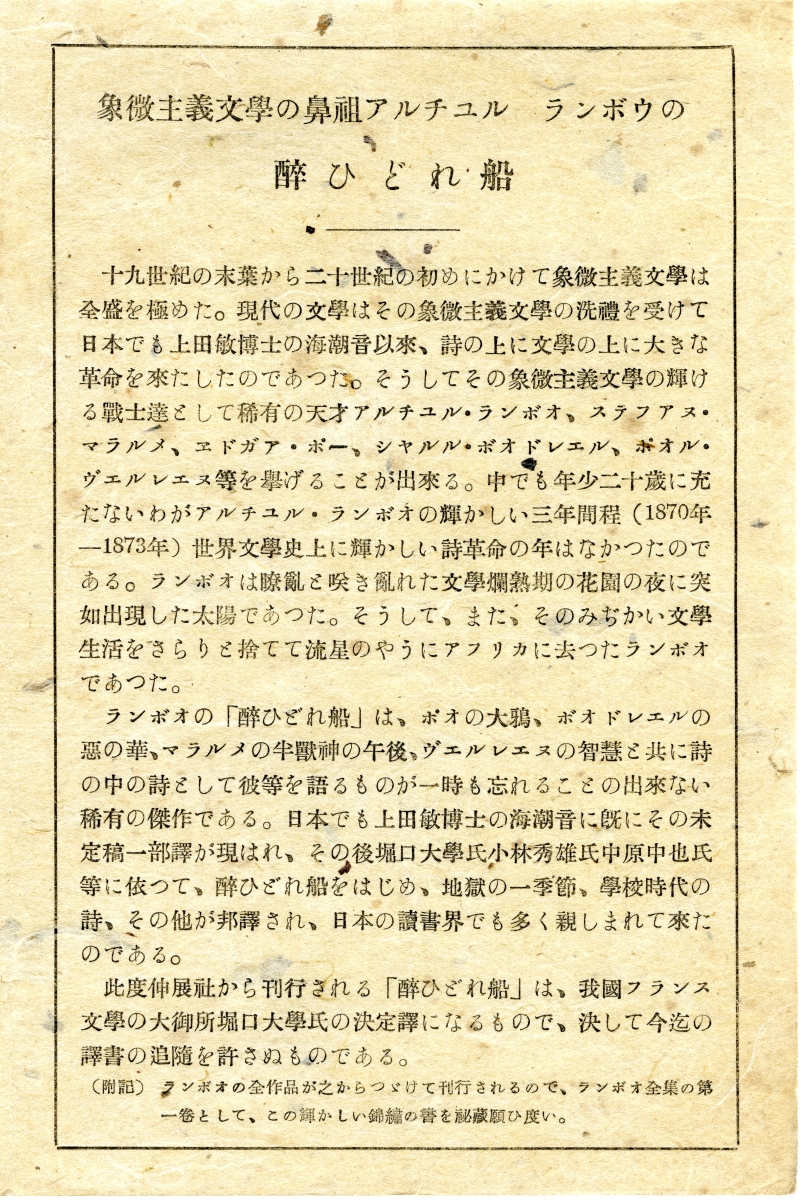 象徴主義文學の鼻祖アルチユル　ランボウの
醉ひどれ船
十九世紀の末葉から二十世紀の初めにかけて象徴主義文學は
全盛を極めた。現代の文學はその象徴主義文學の洗禮を受けて
日本でも上田敏博士の海潮音以來、詩の上に文學の上に大きな
革命を來たしたのであつた。そうしてその象徴主義文學の輝け
る戰士達として稀有の天才アルチユル・ランボオ、ステフアヌ・
マラルメ、ヱドガア・ポー、シヤルル・ボオドレエル、ポオル・
ヴエルレエヌ等を擧げることが出來る。中でも年少二十歳に充
たないわがアルチユル・ランボオの輝かしい三年間程（1870年
―1873年）世界文學史上に輝かしい詩革命の年はなかつたので
ある。ランボオは瞭亂と咲き亂れた文學爛熟期の花園の夜に突
如出現した太陽であつた。そうして、また、そのみぢかい文學
生活をさらりと捨てて流星のやうにアフリカに去つたランボオ
であつた。
ランボオの「醉ひどれ船」は、ポオの大鴉、ボオドレエルの
惡の華、マラルメの半獸神の午後、ヴエルレエヌの智慧と共に詩
の中の詩として彼等を語るものが一時も忘れることの出來ない
稀有の傑作である。日本でも上田敏博士の海潮音に旣にその未
定稿一部譯が現はれ、その後堀口大學氏小林秀雄氏中原中也氏
等に依つて、醉ひどれ船をはじめ、地獄の一季節、學校時代の
詩、その他が邦譯され、日本の讀書界でも多く親しまれて來た
のである。
此度伸展社から刊行される「醉ひどれ船」は、我國フランス
文學の大御所堀口大學氏の決定譯になるもので、決して今迄の
譯書の追隨を許さぬものである。
（附記）　ランボオの全作品が之からつゞけて刊行されるので、ランボオ全集の第
一卷として、この輝かしい錦繡の書を祕藏願ひ度い。